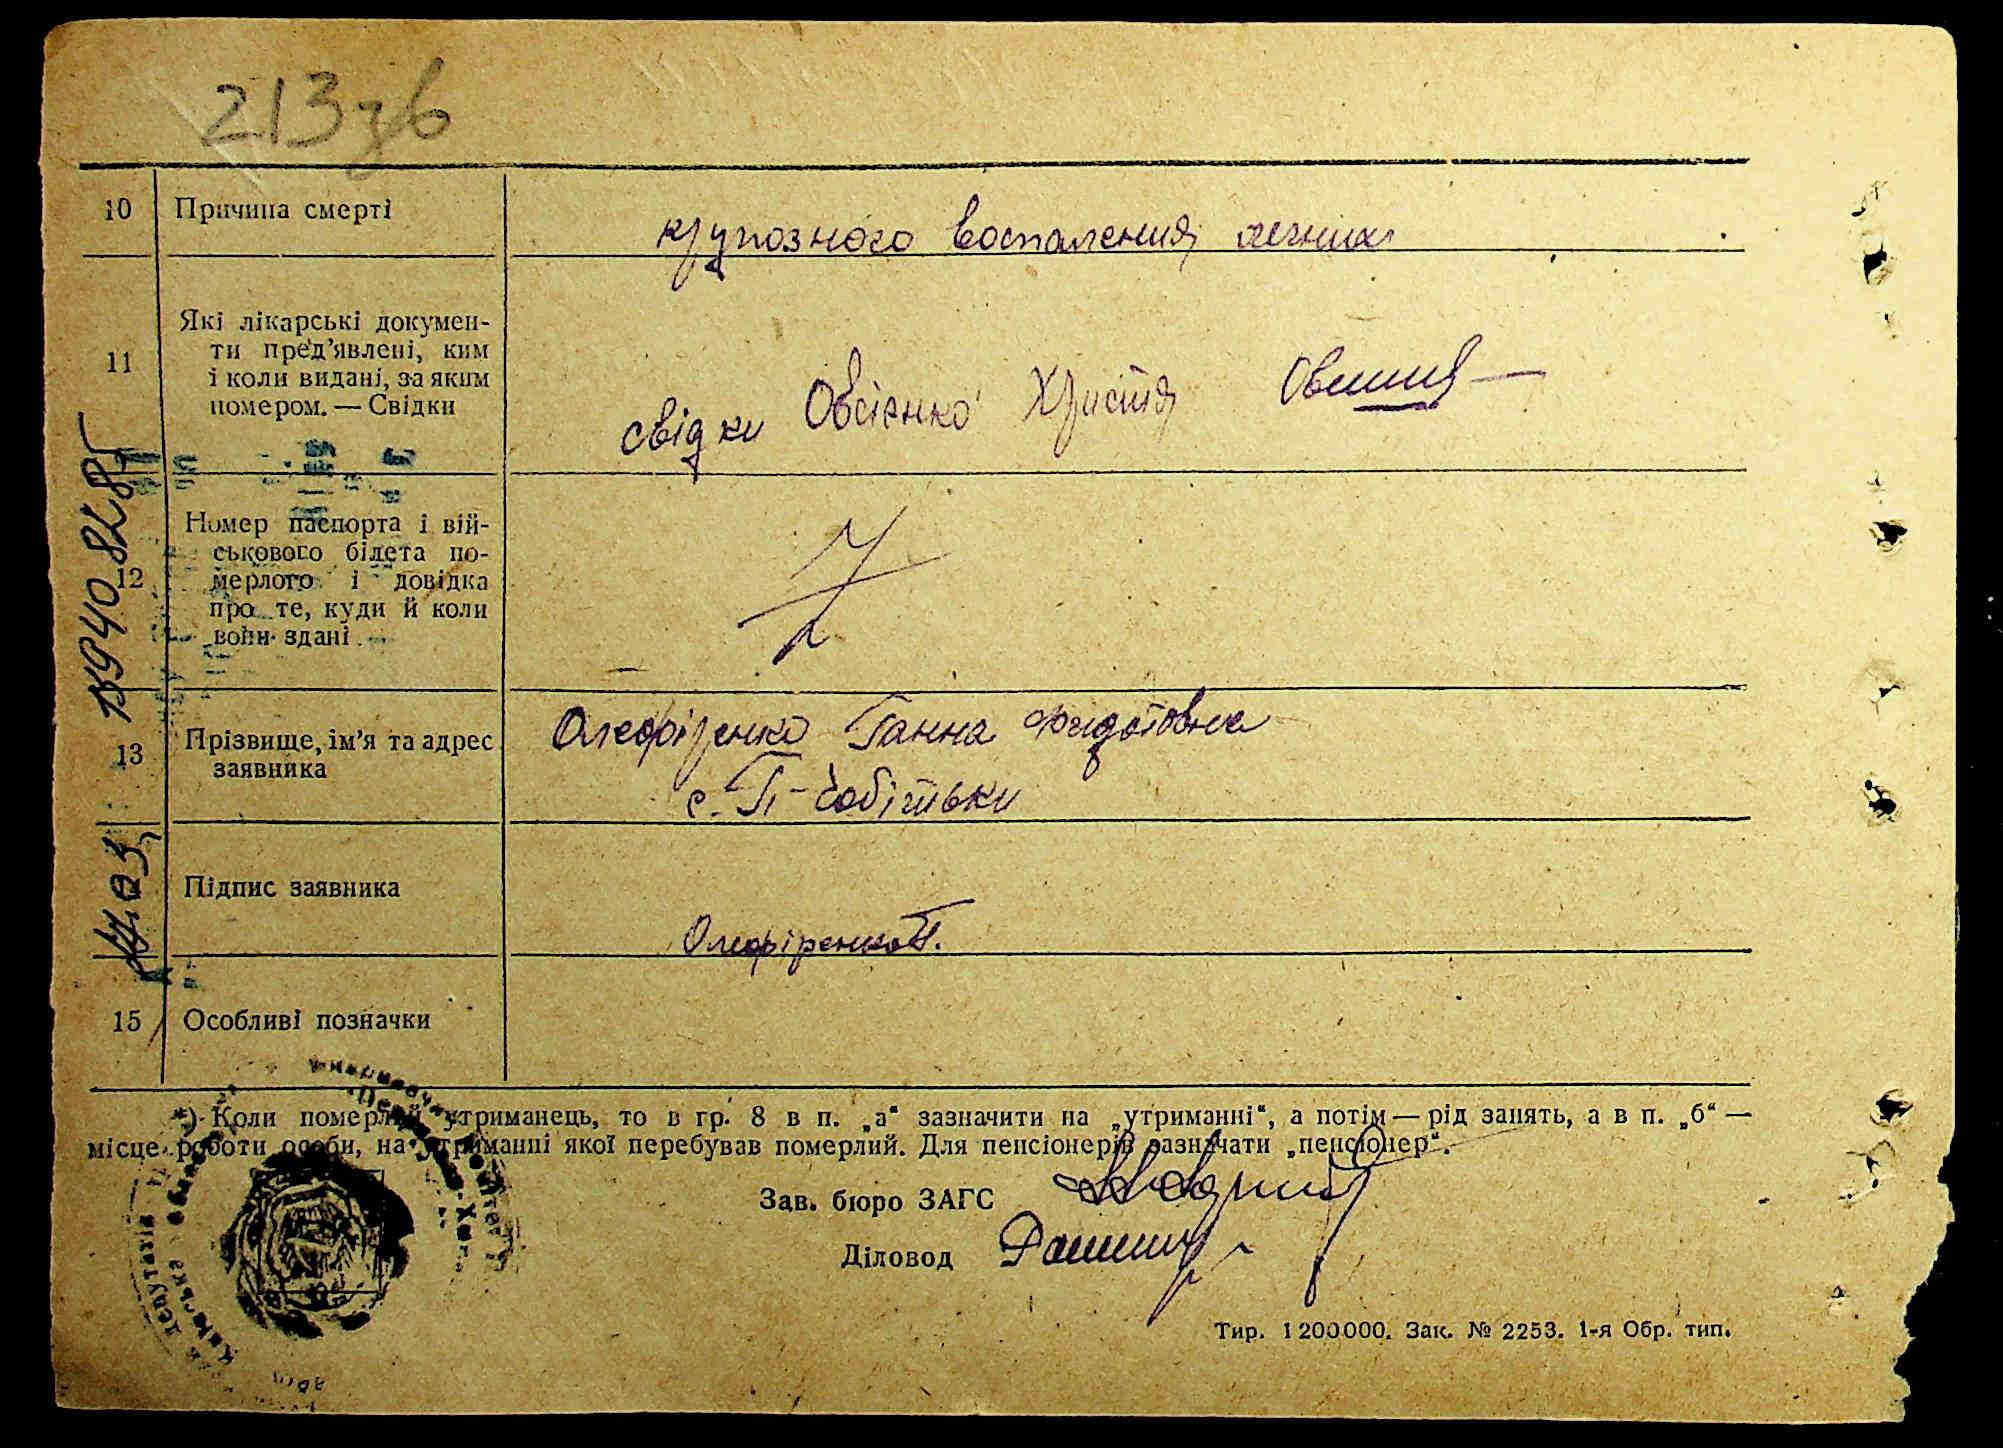 213зв
10 Причина смерті
крупозного воспаления легких
11 Які лікарські докумен-
ти пред'явлені, ким
і коли видані, за яким
номером. — Свідки
свідки Овсієнко Христя
12 Номер паспорта і вій-
ськового білета по-
мерлого і довідка
про те, куди й коли
вони здані
13 Прізвище, ім'я та адрес
заявника
Олефіренко Ганна Федотовна
с. П-Чобітьки
Підпис заявника
Олефіренко Г.
15 Особливі позначки
*) Коли померлий утриманець, то в гр. 8 в п. „а“ зазначити на „утриманні“, а потім — рід занять, а в п. „б“ —
місце роботи особи, на утриманні якої перебував померлий. Для пенсіонерів зазначати „пенсіонер“.
Зав. бюро ЗАГС
Діловод
Тир. 1200000. Зак. № 2253. 1-я Обр. тип.